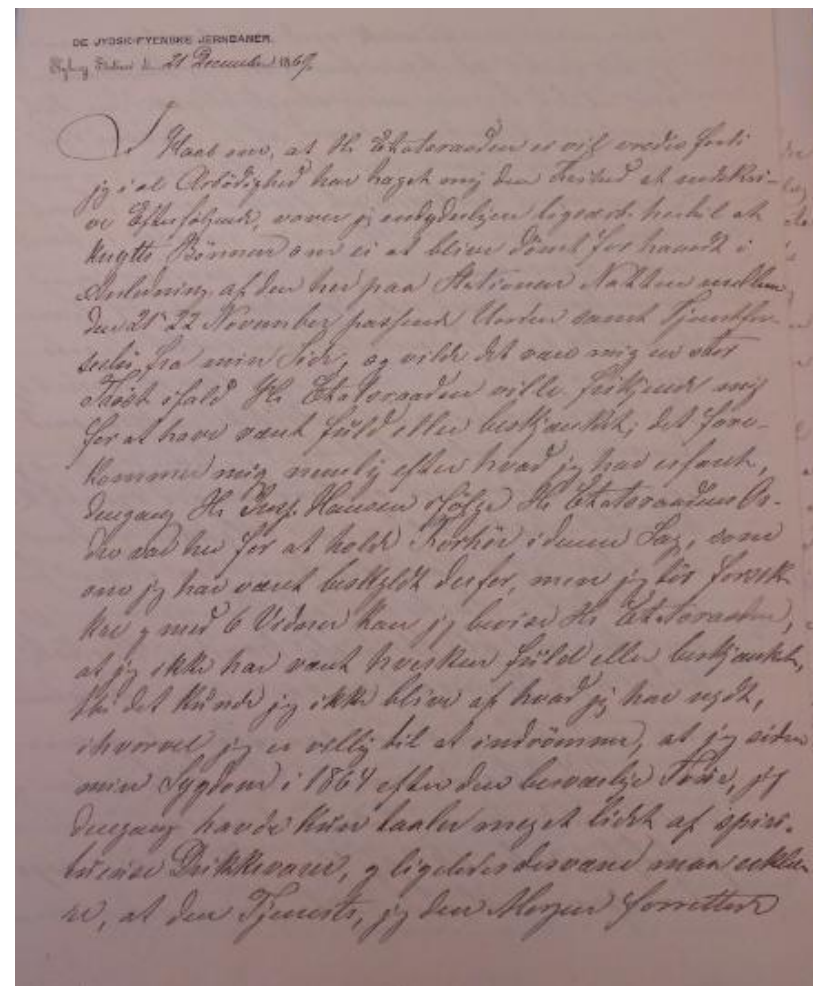 DE JYDSK-FYENSKE JERNBANER.
Station d. 21 December 1867.
I Haab om, at Hr. Etatsraaden ei vil vredes fordi
jeg i al Ærbødighed har taget mig den Frihed at nedskri-
ve Efterfølgende, vover jeg endyderligere ligesaa hertil at
knytte Bønnen om ei at blive dømt for haardt i
Anledning af den her paa Stationen Natten mellem
den 21 22 November passerede Uorden samt Tjenstfor-
seelse fra min Side, og vilde det være mig en stor
Trøst ifald Hr. Etatsraaden ville frikjende mig
for at have været fuld eller beskjænket; det fore-
kommer mig nemlig efter hvad jeg har erfaret,
dengang Hr. Insp. Hansen ifølge Hr. Etatsraadens Or-
dre var her for at holde Forhør i denne Sag, som
om jeg har været beskyldt derfor, men jeg tør forsik-
kre og med 6 Vidner kan jeg bevise Hr. Etatsraaden,
at jeg ikke har været hverken fuld eller beskjænket,
thi det kunde jeg ikke blive af hvad jeg har nydt,
ihvorvel jeg er villig til at indrømme, at jeg siden
min Sygdom i 1864 efter den besværlige jeg
dengang havde kun taaler meget lidet af spiri-
tueuse Drikkevarer, og ligeledes desværre maa erklæ-
re, at den Tjeneste, jeg den Morgen forrettede